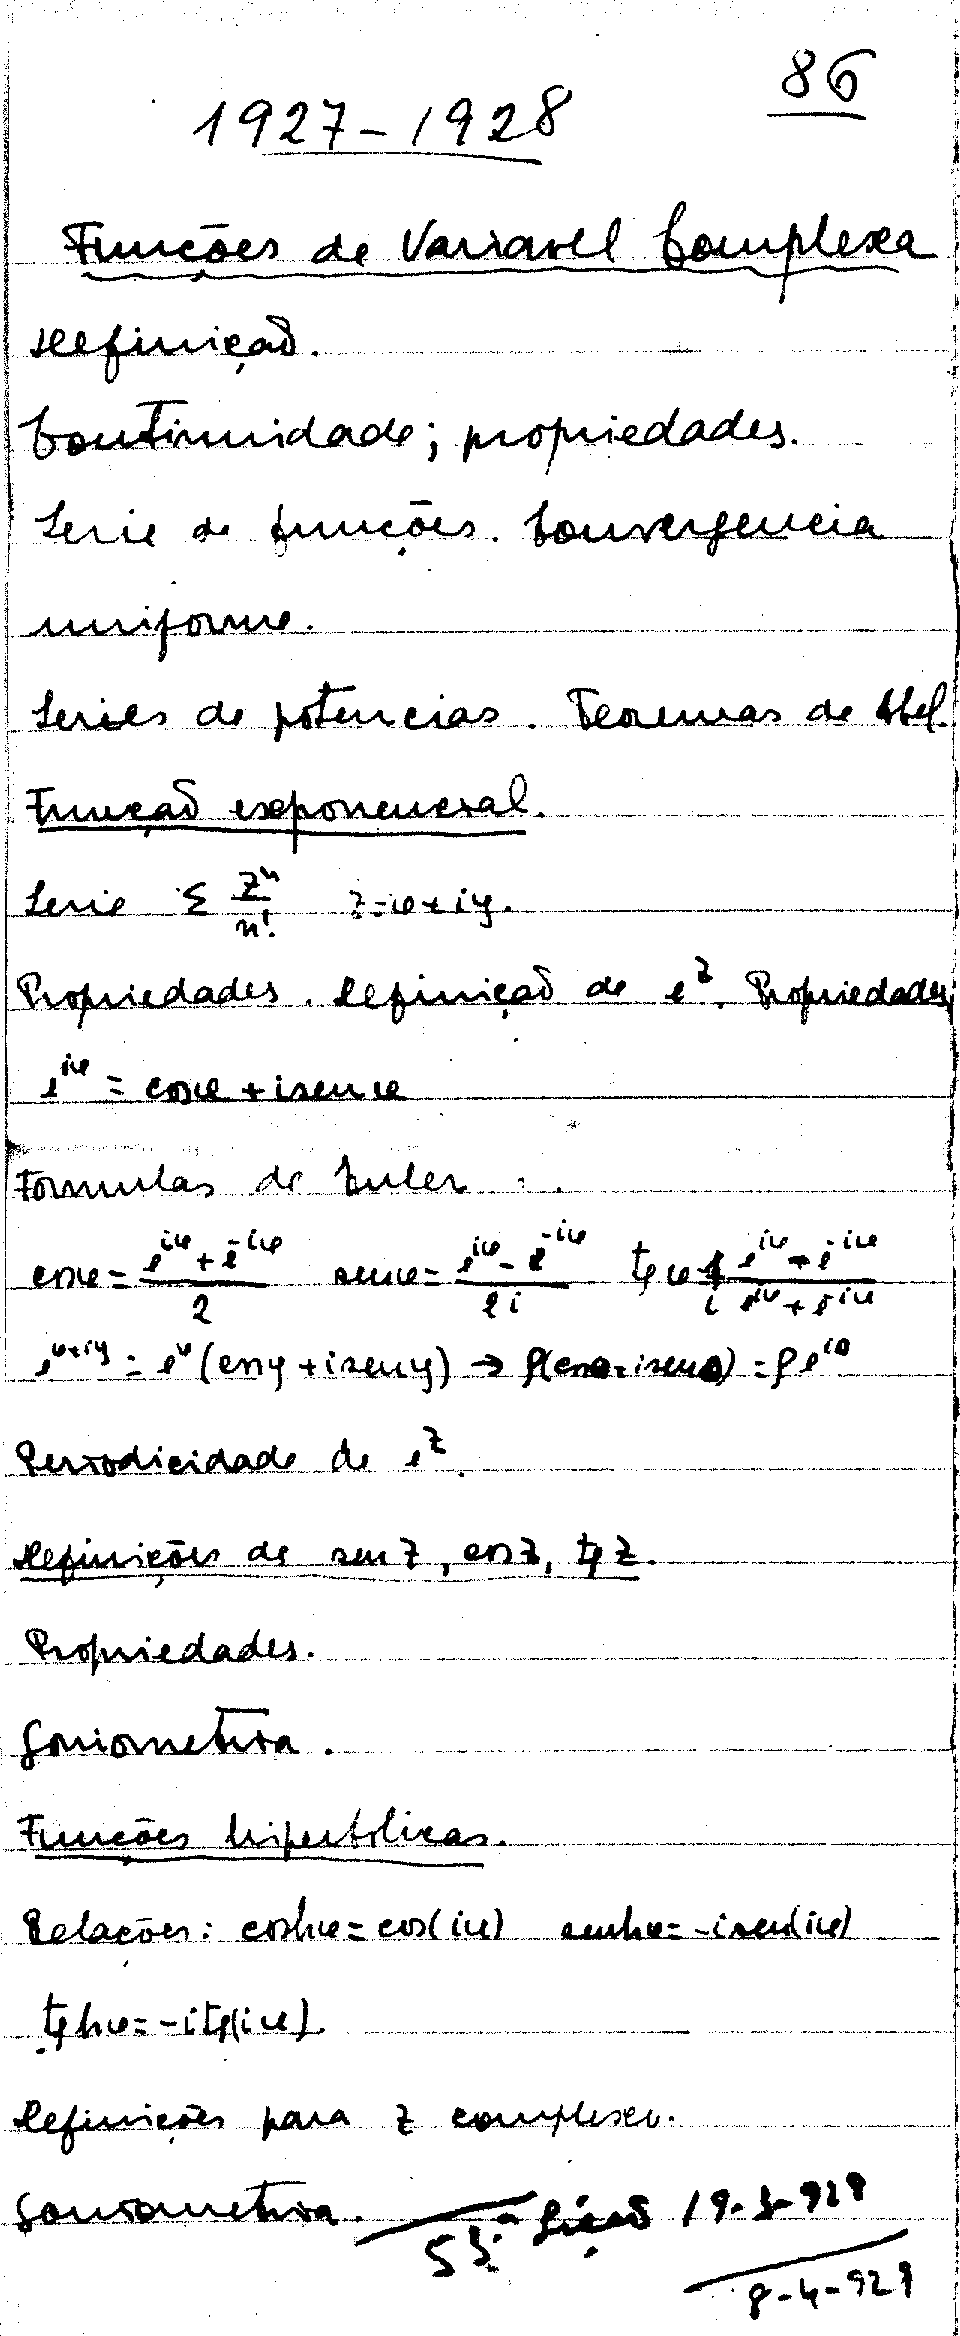 86
1927-1928
Funções de Variavel Complexa
Definição.
Continuidade; propriedades.
Serie de funções. Convergencia
uniforme.
Series de potencias. Teoremas de Abel.
Função exponencial.
Serie Σ zⁿ/n! z=x+iy.
Propriedades. Definição de e^z. Propriedades;
e^{ix} = cosx + isenx
Formulas de Euler
cosx = (e^{ix} + e^{-ix})/2 senx = (e^{ix} - e^{-ix})/2i tgx = 1/i (e^{ix} - e^{-ix})/(e^{ix} + e^{-ix})
e^{x+iy} = e^x (cosy + iseny) → ρ(cosθ + isenθ) = ρe^{iθ}
Periodicidade de e^z.
Definições de senz, cosz, tgz.
Propriedades.
Goniometria.
Funções hiperbolicas.
Relações: coshx = cos(ix) senhx = -isen(ix)
tghx = -itg(ix).
Definições para z complexo.
Goniometria. 53.ª Lição 19-3-928